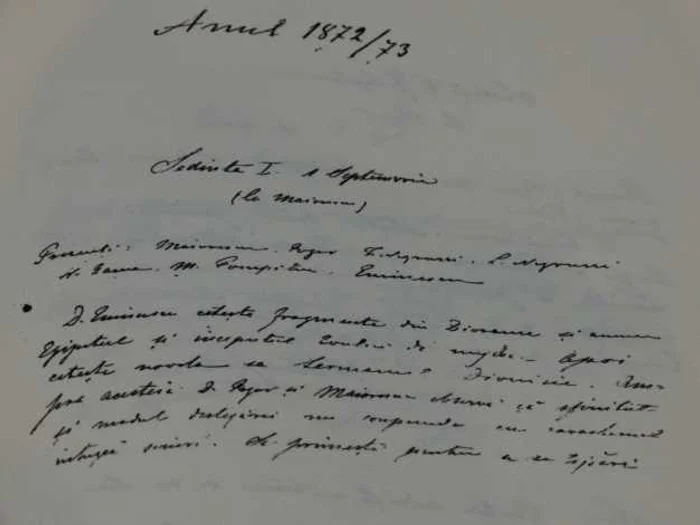 Anul 1872/73
Ședința I. 1 Septemvrie
(la Maiorescu)
Prezenți: Maiorescu. Pogor I. Negruzzi. L. Negruzzi
N. Gane. M. Pompiliu. Eminescu
D. Eminescu citește fragmente din Diorama și anume
Egipetul și începutul evului de mijloc. Apoi
citește novela sa Sermanul Dionisie. Asu-
pra acesteia D. Pogor și Maiorescu observă că sfârșitul
și modul deslegărei nu corespunde cu caracterul
întregei scrieri. Se primește pentru a se tipări